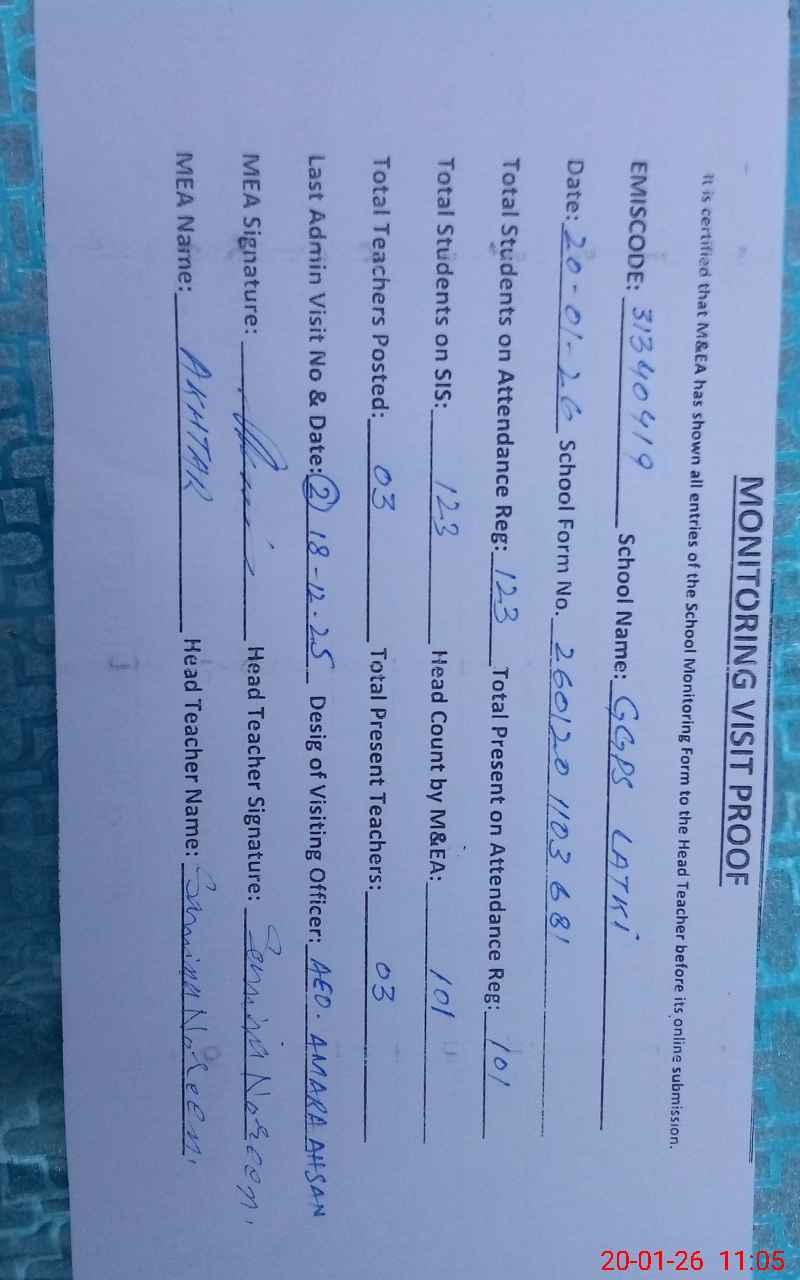 MONITORING VISIT PROOF
It is certified that M&EA has shown all entries of the School Monitoring Form to the Head Teacher before its online submission.
EMISCODE: 31340419 School Name: GGPS LATKI
Date: 20-01-26 School Form No. 260120 1103 681
Total Students on Attendance Reg: 123 Total Present on Attendance Reg: 101
Total Students on SIS: 123 Head Count by M&EA: 101
Total Teachers Posted: 03 Total Present Teachers: 03
Last Admin Visit No & Date: (2) 18-12-25 Desig of Visiting Officer: AEO. AMARA AHSAN
MEA Signature: Head Teacher Signature:
MEA Name: AKHTAR Head Teacher Name:
20-01-26 11:05